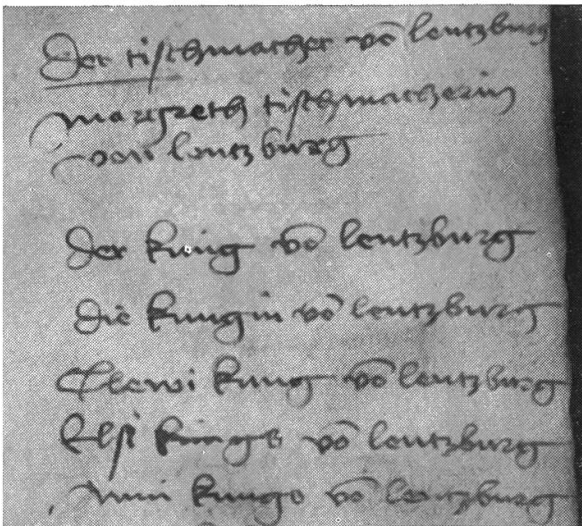 Der tischmacher vō lentzburg
margreth tischmacherin
von lentzburg
der kung vō lentzburg
die kungin vō lentzburg
Clewi kung vō lentzburg
Elsi kungs vō lentzburg
kungs vō lentzburg